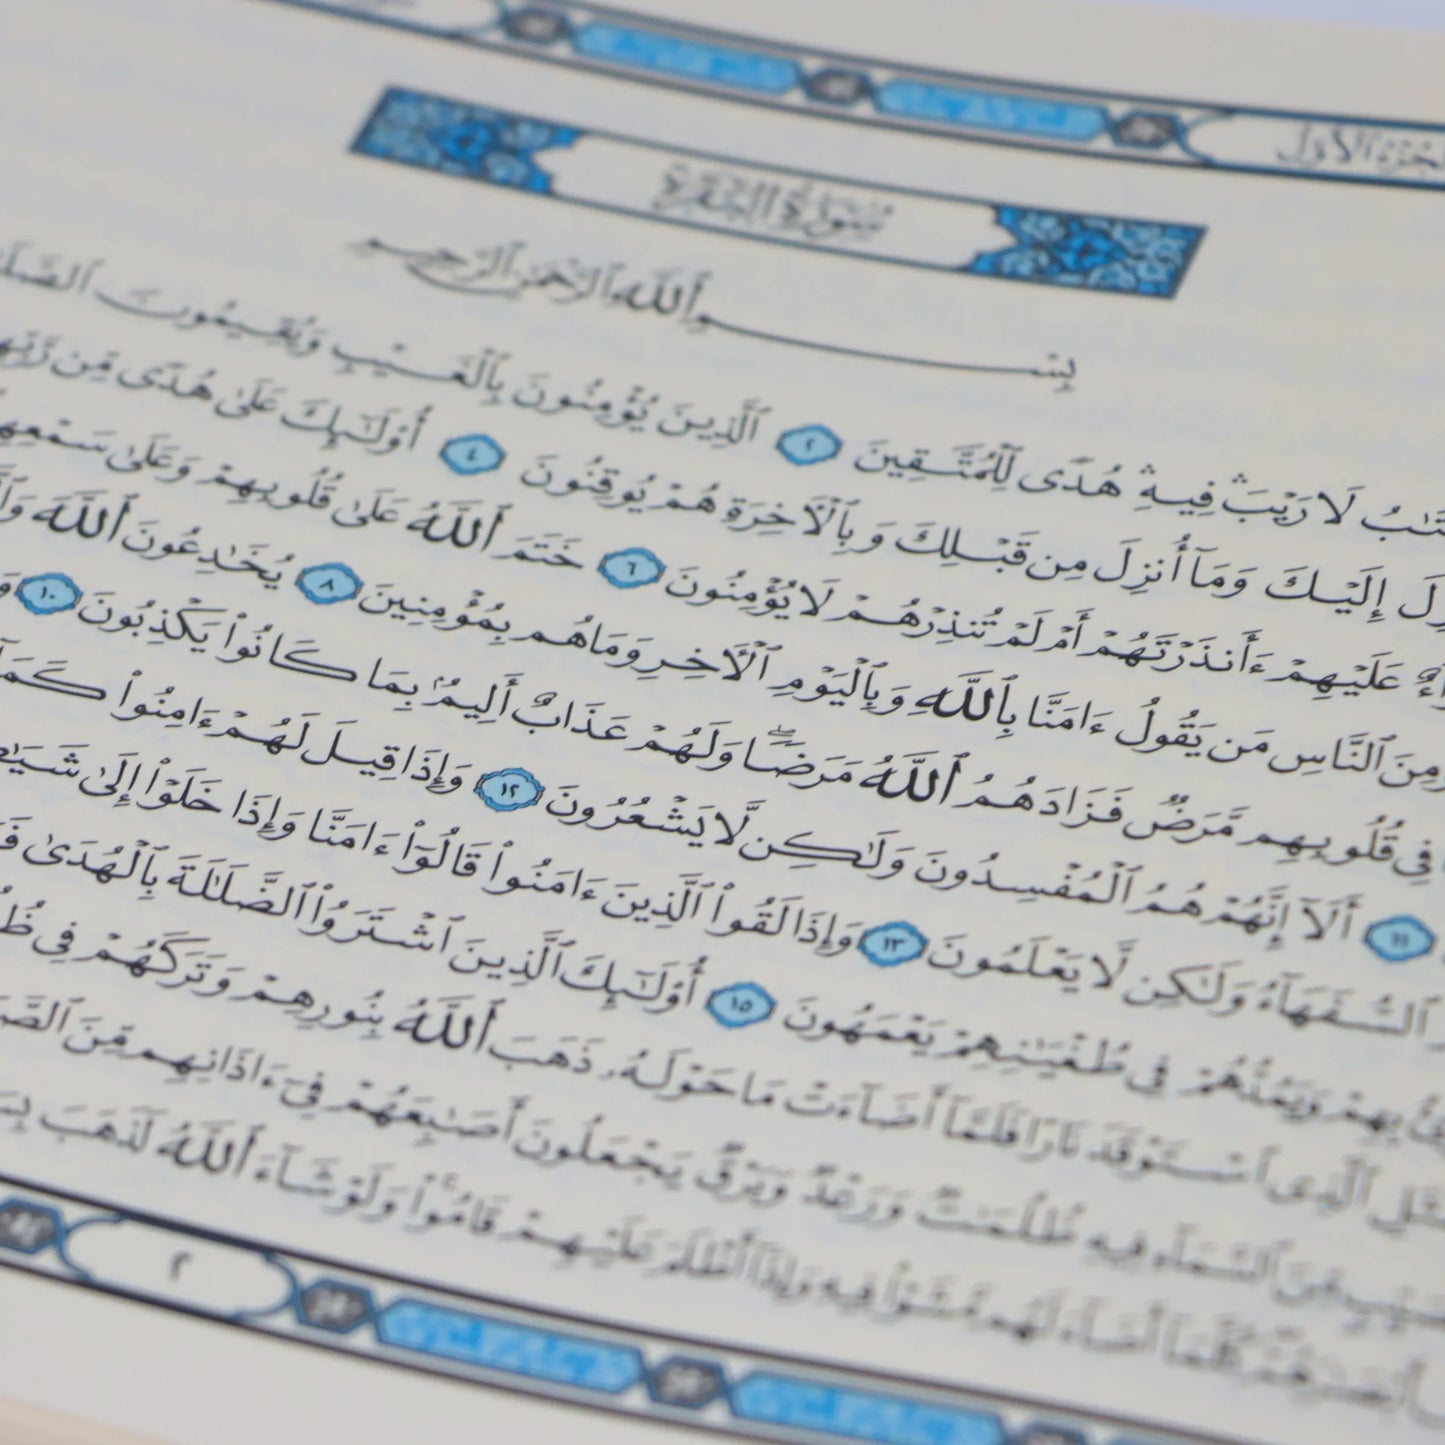 الجزء الأول
سورة البقرة
بسم ٱلله ٱلرحمن ٱلرحيم
لَا رَيۡبَۛ فِيهِۛ هُدٗى لِّلۡمُتَّقِينَ ٢ ٱلَّذِينَ يُؤۡمِنُونَ بِٱلۡغَيۡبِ وَيُقِيمُونَ
إِلَيۡكَ وَمَآ أُنزِلَ مِن قَبۡلِكَ وَبِٱلۡأٓخِرَةِ هُمۡ يُوقِنُونَ ٤ أُوْلَٰٓئِكَ عَلَىٰ هُدٗى مِّن
عَلَيۡهِمۡ ءَأَنذَرۡتَهُمۡ أَمۡ لَمۡ تُنذِرۡهُمۡ لَا يُؤۡمِنُونَ ٦ خَتَمَ ٱللَّهُ عَلَىٰ قُلُوبِهِمۡ وَعَلَىٰ
وَمِنَ ٱلنَّاسِ مَن يَقُولُ ءَامَنَّا بِٱللَّهِ وَبِٱلۡيَوۡمِ ٱلۡأٓخِرِ وَمَا هُم بِمُؤۡمِنِينَ ٨ يُخَٰدِعُونَ ٱللَّهَ
فِي قُلُوبِهِم مَّرَضٞ فَزَادَهُمُ ٱللَّهُ مَرَضٗاۖ وَلَهُمۡ عَذَابٌ أَلِيمُۢ بِمَا كَانُواْ يَكۡذِبُونَ ١٠
١١ أَلَآ إِنَّهُمۡ هُمُ ٱلۡمُفۡسِدُونَ وَلَٰكِن لَّا يَشۡعُرُونَ ١٢ وَإِذَا قِيلَ لَهُمۡ ءَامِنُواْ كَمَآ
ٱلسُّفَهَآءُ وَلَٰكِن لَّا يَعۡلَمُونَ ١٣ وَإِذَا لَقُواْ ٱلَّذِينَ ءَامَنُواْ قَالُوٓاْ ءَامَنَّا وَإِذَا خَلَوۡاْ إِلَىٰ
بِهِمۡ وَيَمُدُّهُمۡ فِي طُغۡيَٰنِهِمۡ يَعۡمَهُونَ ١٥ أُوْلَٰٓئِكَ ٱلَّذِينَ ٱشۡتَرَوُاْ ٱلضَّلَٰلَةَ بِٱلۡهُدَىٰ
ٱلَّذِي ٱسۡتَوۡقَدَ نَارٗا فَلَمَّآ أَضَآءَتۡ مَا حَوۡلَهُۥ ذَهَبَ ٱللَّهُ بِنُورِهِمۡ وَتَرَكَهُمۡ فِي
مِّنَ ٱلسَّمَآءِ فِيهِ ظُلُمَٰتٞ وَرَعۡدٞ وَبَرۡقٞ يَجۡعَلُونَ أَصَٰبِعَهُمۡ فِيٓ ءَاذَانِهِم مِّنَ
أَبۡصَٰرَهُمۡۖ كُلَّمَآ أَضَآءَ لَهُم مَّشَوۡاْ فِيهِ وَإِذَآ أَظۡلَمَ عَلَيۡهِمۡ قَامُواْۚ وَلَوۡ شَآءَ ٱللَّهُ لَذَهَبَ
٢